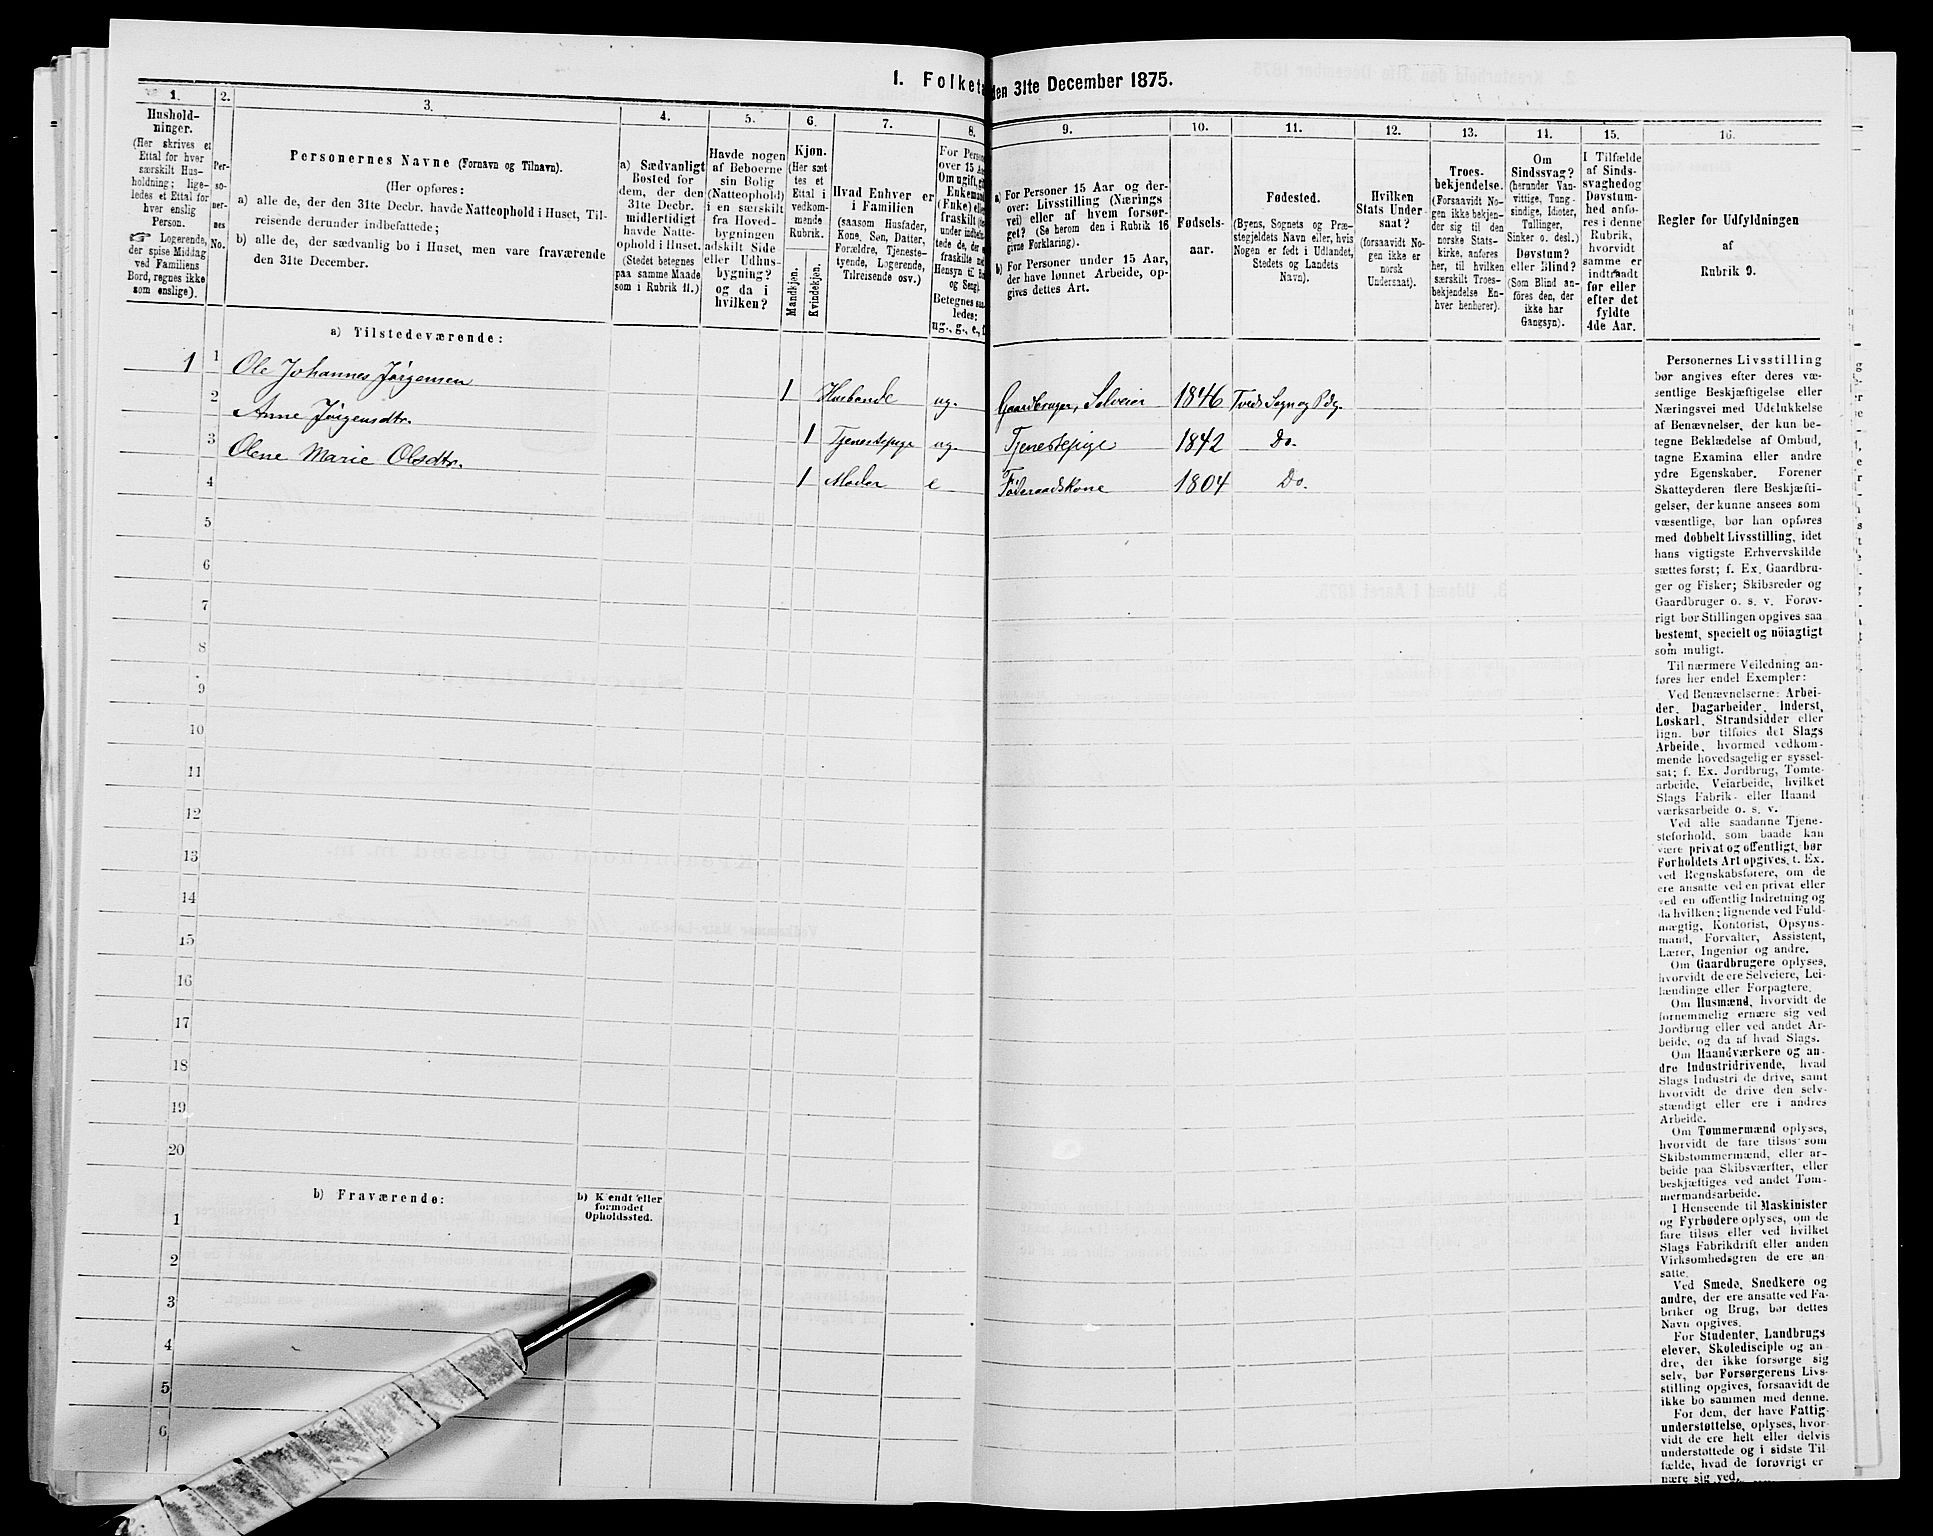 1. Folketæ
den 31te December 1875.
1.
2.
3.
4.
5.
6.
7.
8.
9.
10.
11.
12.
13.
14.
15.
16.
Hushold-
ninger.
(Her skrives et
Ettal for hver
særskilt Hus-
holdning; lige-
ledes et Ettal for
hver enslig
Person.
☞ Logerende,
der spise Middag
ved Familiens
Bord, regnes ikke
som enslige).
Per-
so-
ner-
nes
No.
Personernes Navne (Fornavn og Tilnavn).
(Her opføres:
a) alle de, der den 31te Decbr. havde Natteophold i Huset, Til-
reisende derunder indbefattede;
b) alle de, der sædvanlig bo i Huset, men vare fraværende
den 31te December.
a) Sædvanligt
Bosted for
dem, der den
31te Decbr.
midlertidigt
havde Natte-
ophold i Huset.
(Stedet betegnes
paa samme Maade
som i Rubrik 11.)
Havde nogen
af Beboerne
sin Bolig
(Natteophold)
i en særskilt
fra Hoved-
bygningen
adskilt Side
eller Udhus-
bygning?
og da i
hvilken?
Kjøn.
(Her sæt
tes et
Ettal i
vedkom-
mende
Rubrik.
Mandkjøn.
Kvindekjøn.
Hvad Enhver er
i Familien
(saasom Husfader,
Kone, Søn, Datter,
Forældre, Tjeneste-
tyende, Logerende,
Tilreisende osv.)
For Person
over 15 Aa
Om ugift, gi
Enkemand
(Enke) elle
fraskilt
under indbefat
tede de, der e
fraskilte
Hensyn til
og Seng).
Betegnes saa
ledes:
ug., g., e., f.
a) For Personer 15 Aar og der-
over: Livsstilling (Nærings
vei) eller af hvem forsør-
get? (Se herom den i Rubrik 16
givne Forklaring).
b) For Personer under 15 Aar,
der have lønnet Arbeide, op-
gives dettes Art.
Fødsels-
aar.
Fødested.
(Byens, Sognets og Præ-
stegjeldets Navn eller, hvis
Nogen er født i Udlandet,
Stedets og Landets
Navn).
Hvilken
Stats Under-
saat?
(forsaavidt No-
gen ikke er
norsk
Undersaat).
Troes-
bekjendelse.
(Forsaavidt No-
gen ikke bekjen-
der sig til den
norske Stats-
kirke, anføres
her, til hvilken
særskilt Troes-
bekjendelse En-
hver henhører).
Om
Sindssvag?
(herunder Van-
vittige, Tung-
sindige, Idioter,
Tullinger,
Sinker o. desl.)
Døvstum?
eller Blind?
(Som Blind an-
føres den, der
ikke har
Gangsyn).
I Tilfælde
af Sinds-
svaghed og
Døvstum-
hed anfø-
res i denne
Rubrik,
hvorvidt
samme er
indtraadt
før eller
efter det
fyldte
4de Aar.
Regler for Udfyldningen
af
Rubrik 9.
a) Tilstedeværende:
1 1 Ole Johannes Jørgensen 1 Husbonde ug. Gaardbruger, Selveier 1846 Tveds Sogn og Pdg.
2 Anne Jørgensdtr. 1 Tjenestepige ug. Tjenestepige 1842 Do.
3 Olene Marie Olsdtr. 1 Moder e Føderaadskone 1804 Do.
4
5
6
7
8
9
10
11
12
13
14
15
16
17
18
19
20
b) Fraværende:
b) Kjendt eller
formodet
Opholdssted.
1
2
3
4
5
6
Personernes Livsstilling
bør angives efter deres væ-
sentlige Beskjæftigelse eller
Næringsvei med Udelukkelse
af Benævnelser, der kun be-
tegne Beklædelse af Ombud,
tagne Examina eller andre
ydre Egenskaber. Forener
Skatteyderen flere Beskjæfti-
gelser, der kunne ansees som
væsentlige, bør han opføres
med dobbelt Livsstilling, idet
hans vigtigste Erhvervskilde
sættes først; f. Ex. Gaardbru-
ger og Fisker; Skibsreder og
Gaardbruger o. s. v. Forøv-
rigt bør Stillingen opgives saa
bestemt, specielt og nøiagtigt
som muligt.
Til nærmere Veiledning an-
føres her endel Exempler:
Ved Benævnelserne: Arbei-
der, Dagarbeider, Inderst,
Løskarl, Strandsidder eller
lign. bør tilføies det Slags
Arbeide, hvormed vedkom-
mende hovedsagelig er syssel-
sat; f. Ex. Jordbrug, Tomte-
arbeide, Veiarbeide, hvilket
Slags Fabrik- eller Haand
værksarbeide o. s. v.
Ved alle saadanne Tjene-
steforhold, som baade kan
være privat og offentligt, bør
Forholdets Art opgives, t. Ex.
ved Regnskabsførere, om de
ere ansatte ved en privat eller
ved en offentlig Indretning og
da hvilken; lignende ved Fuld-
mægtig, Kontorist, Opsyns-
mand, Forvalter, Assistent,
Lærer, Ingeniør og andre.
Om Gaardbrugere oplyses,
hvorvidt de ere Selveiere, Lei-
lændinge eller Forpagtere.
Om Husmænd, hvorvidt de
fornemmelig ernære sig ved
Jordbrug eller ved andet Ar-
beide, og da af hvad Slags.
Om Haandværkere og an-
dre Industridrivende, hvad
Slags Industri de drive, samt
hvorvidt de drive den selv-
stændigt eller ere i andres
Arbeide.
Om Tømmermænd oplyses,
hvorvidt de fare tilsøs som
Skibstømmermænd, eller ar-
beide paa Skibsværfter, eller
beskjæftiges ved andet Tøm-
mermandsarbeide.
I Henseende til Maskinister
og Fyrbødere oplyses, om de
fare tilsøs eller ved hvilket
Slags Fabrikdrift eller anden
Virksomhedsgren de ere an-
satte.
Ved Smede, Snedkere og
andre, der ere ansatte ved Fa-
briker og Brug, bør dettes
Navn opgives.
For Studenter, Landbrugs
elever, Skoledisciple og an-
dre, der ikke forsørge sig
selv, bør Forsørgerens Livs-
stilling opgives, forsaavidt de
ikke bo sammen med denne.
For dem, der have Fattig-
understøttelse, oplyses, hvor-
vidt de ere helt eller delvis
understøttede og i sidste Til-
fælde, hvad de forøvrigt er
nære sig ved.